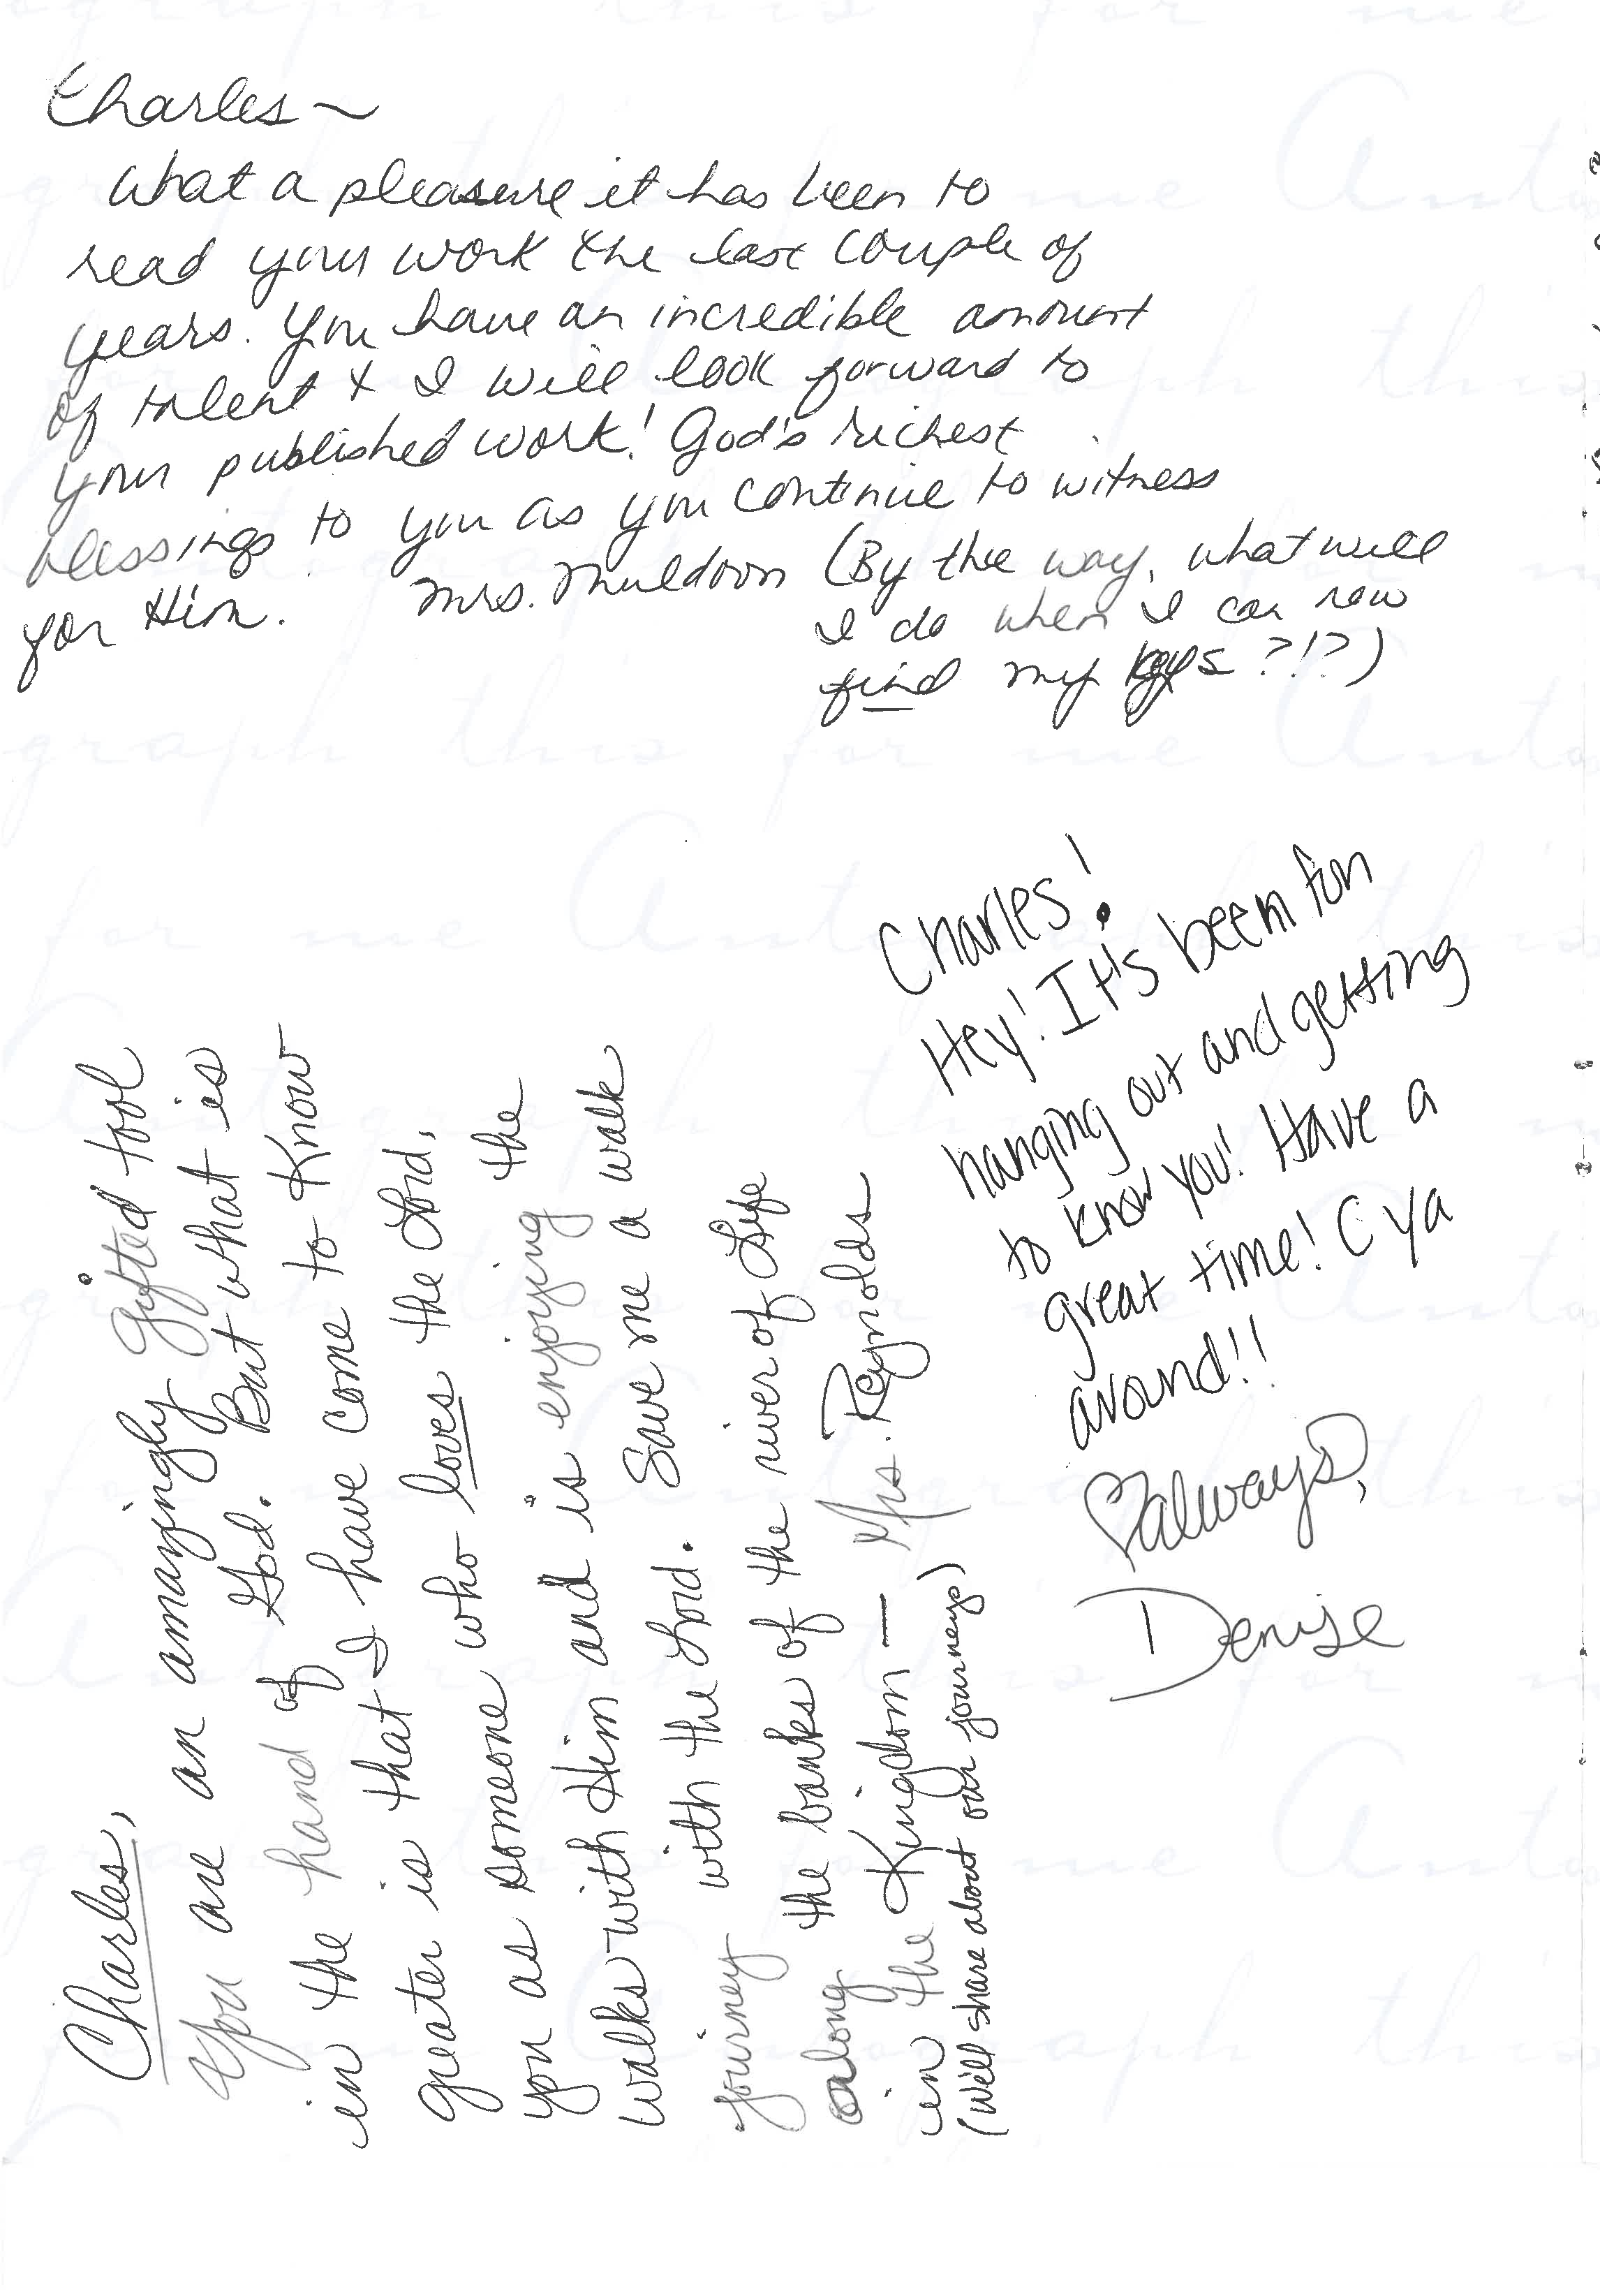 Charles~
What a pleasure it has been to
read your work the last couple of
years. You have an incredible amount
of talent & I will look forward to
your published work! God's richest
blessings to you as you continue to witness
for Him. Mrs. Muldoon (By the way, what will
I do when I can now
find my keys?!?)
Charles!
Hey! It's been fun
hanging out and getting
to know you! Have a
great time! C ya
around!!
♡always,
Denise
Charles,
You are an amazingly gifted tool
in the hand of God. But what is
greater is that I have come to Know
you as someone who loves the Lord,
walks with Him and is enjoying the
journey with the Lord. Save me a walk
along the banks of the river of Life
in the Kingdom— Mrs. Reynolds
(We'll share about our journeys)
Autograph this for me